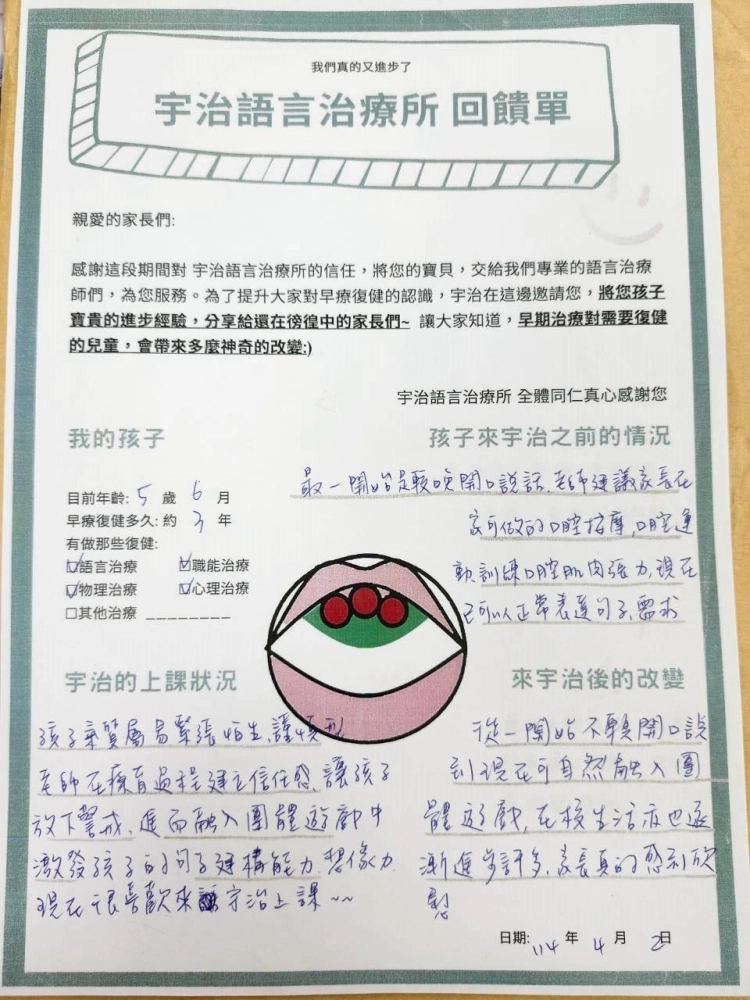 我們真的又進步了
宇治語言治療所 回饋單
親愛的家長們:
感謝這段期間對 宇治語言治療所的信任，將您的寶貝，交給我們專業的語言治療
師們，為您服務。為了提升大家對早療復健的認識，宇治在這邊邀請您，將您孩子
寶貴的進步經驗，分享給還在徬徨中的家長們~ 讓大家知道，早期治療對需要復健
的兒童，會帶來多麼神奇的改變:)
宇治語言治療所 全體同仁真心感謝您
我的孩子
目前年齡: 5 歲 6 月
早療復健多久: 約 3 年
有做那些復健:
☑語言治療 ☑職能治療
☑物理治療 ☑心理治療
☐其他治療 ________
孩子來宇治之前的情況
最一開始是較晚開口說話,老師建議家長在
家可做的口腔按摩,口腔運
動訓練口腔肌肉張力,現在
已可以正常表達句子,需求
宇治的上課狀況
孩子氣質屬易緊張怕生、謹慎型
老師在療育過程建立信任感,讓孩子
放下警戒、進而融入團體遊戲中
激發孩子的句子建構能力、想像力
現在很喜歡來宇治上課~~
來宇治後的改變
從一開始不願開口說
到現在可自然融入團
體遊戲,在校生活亦也逐
漸進步許多,家長真的感到欣
慰
日期: 114 年 4 月 2日